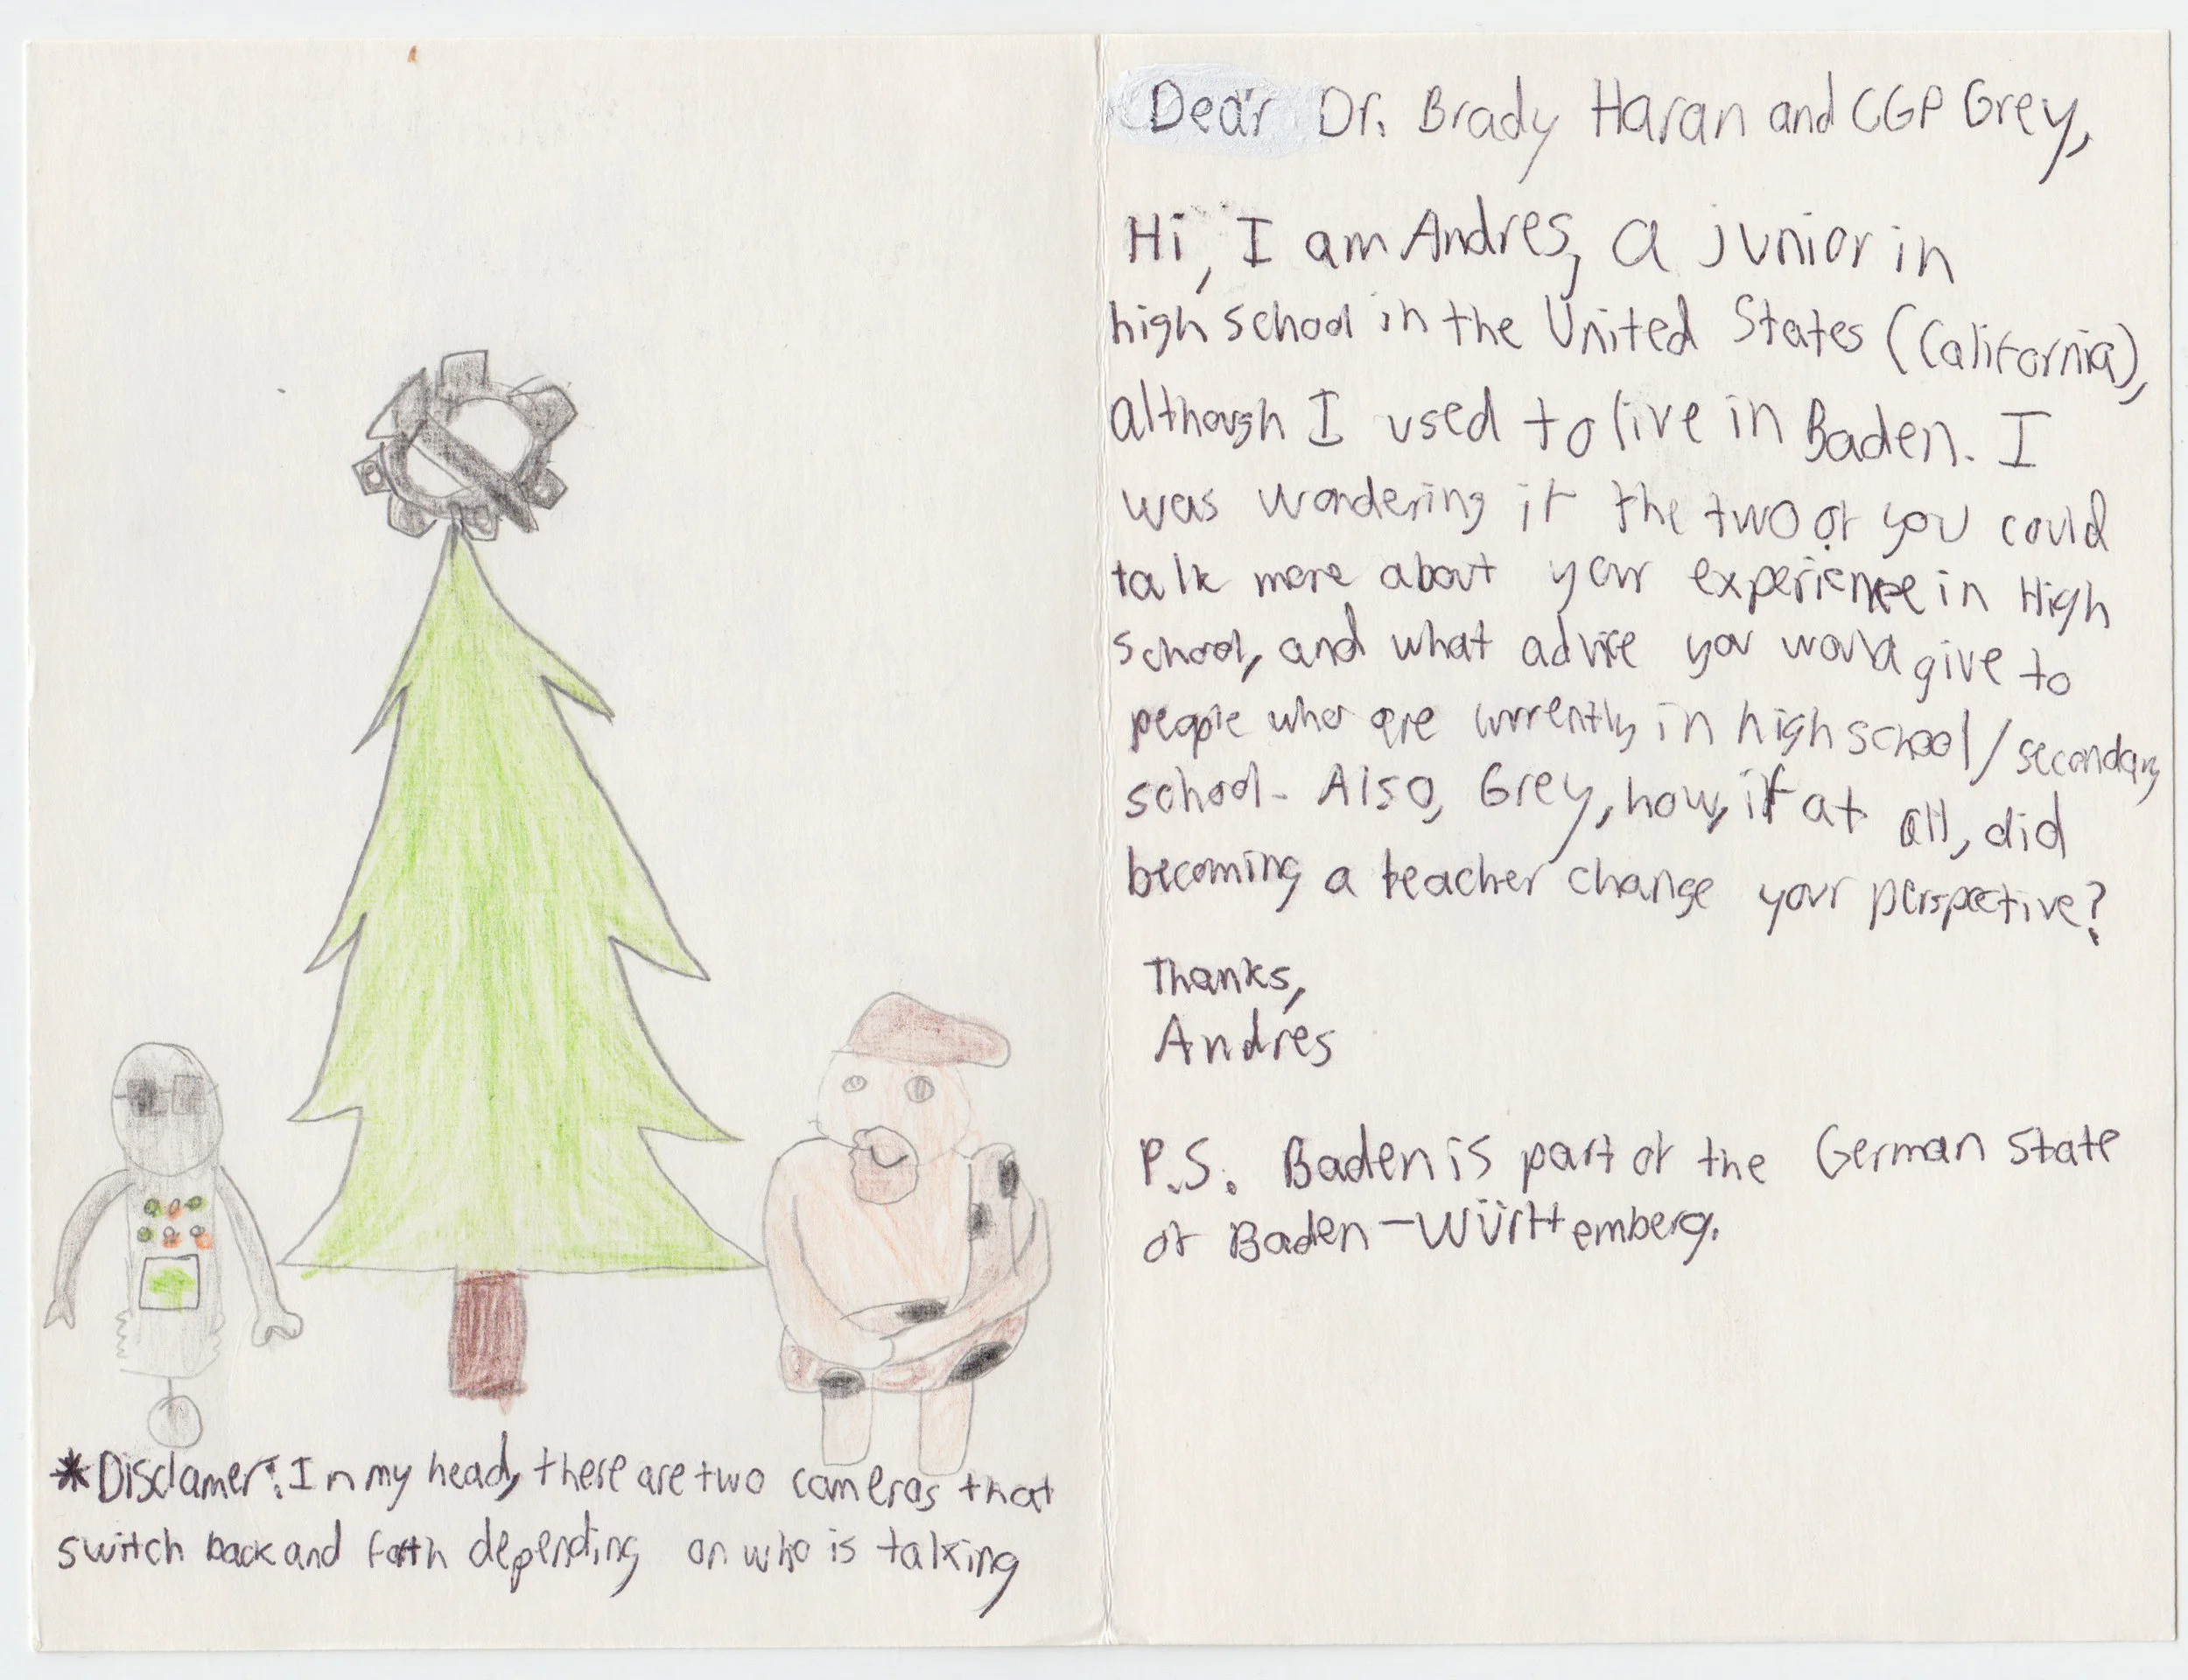 *Disclamer: In my head, there are two cameras that
switch back and forth depending on who is talking
Dear Dr. Brady Haran and CGP Grey,
Hi, I am Andres, a junior in
high school in the United States (California),
although I used to live in Baden. I
was wondering if the two of you could
talk more about your experience in High
school, and what advice you would give to
people who are currently in high school/secondary
school. Also, Grey, how, if at all, did
becoming a teacher change your perspective?
Thanks,
Andrés
P.S. Baden is part of the German State
of Baden-Württemberg.